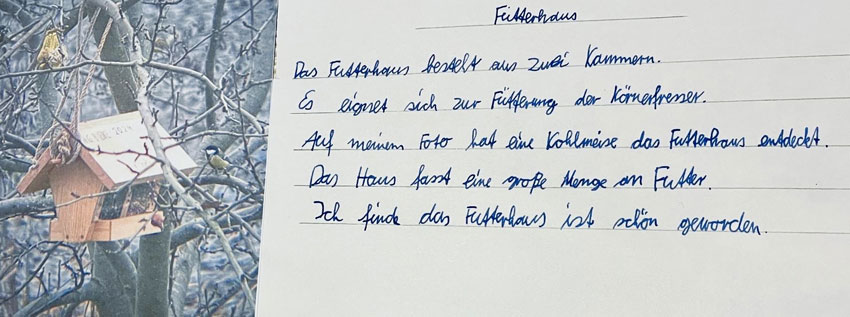 Futterhaus
Das Futterhaus besteht aus zwei Kammern.
Es eignet sich zur Fütterung der Körnerfresser.
Auf meinem Foto hat eine Kohlmeise das Futterhaus entdeckt.
Das Haus fasst eine große Menge an Futter.
Ich finde das Futterhaus ist schön geworden.